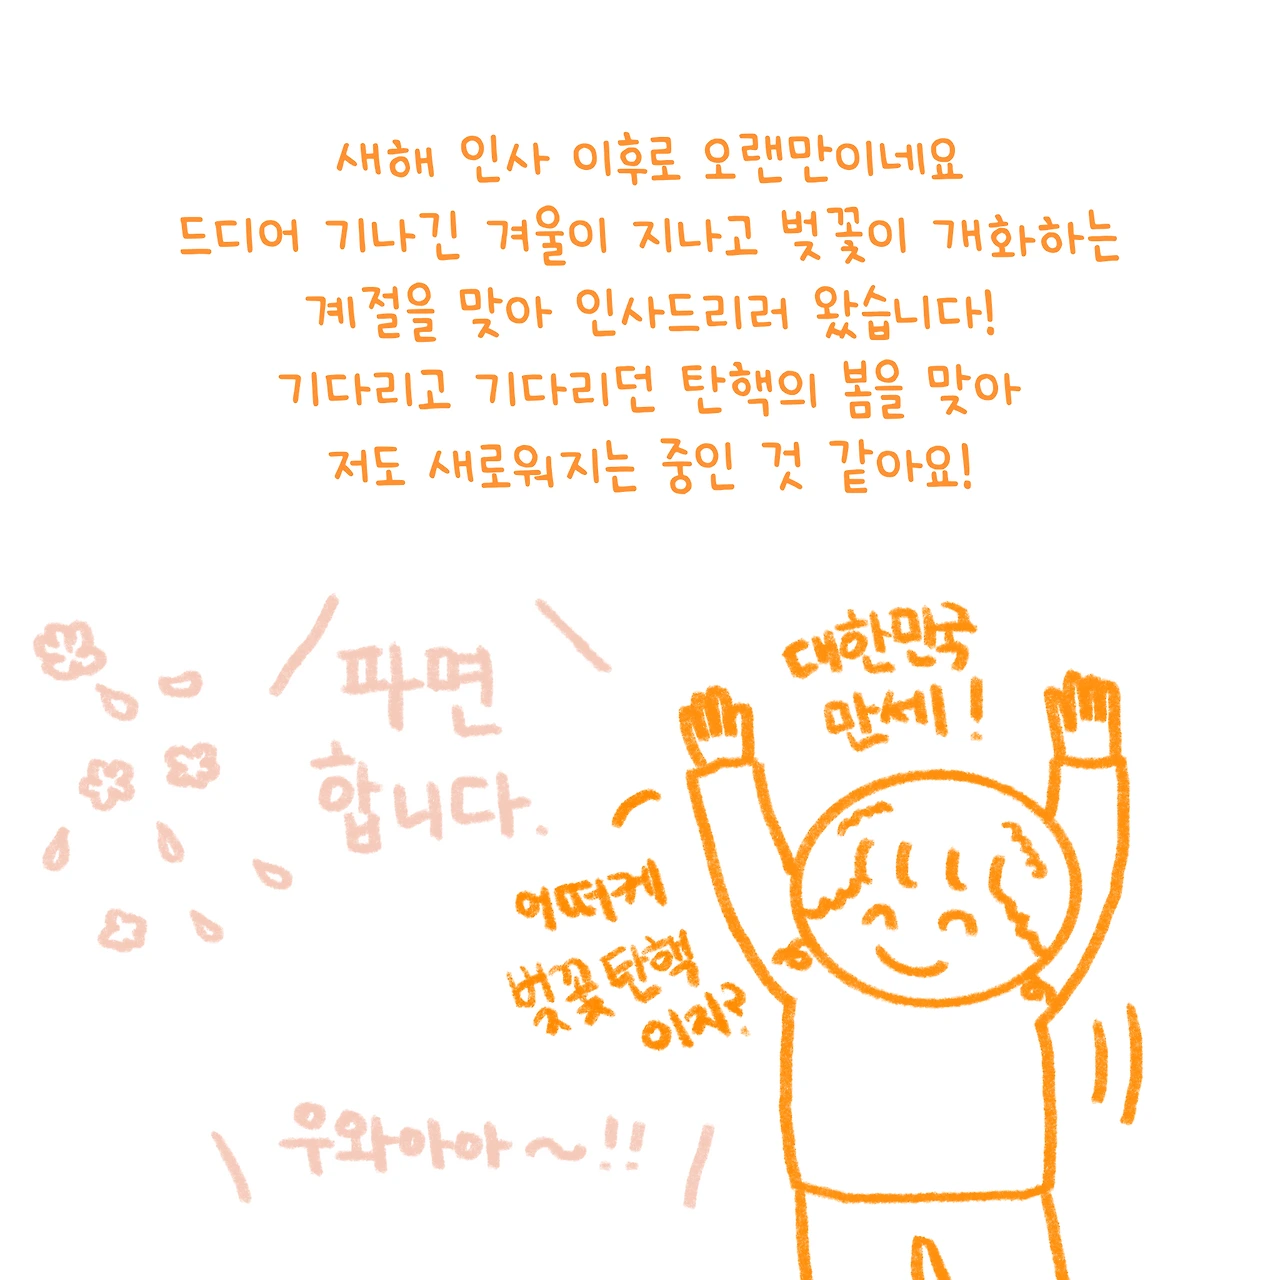 새해 인사 이후로 오랜만이네요
드디어 기나긴 겨울이 지나고 벚꽃이 개화하는
계절을 맞아 인사드리러 왔습니다!
기다리고 기다리던 탄핵의 봄을 맞아
저도 새로워지는 중인 것 같아요!
파면
합니다.
대한민국
만세!
어떠케
벚꽃 탄핵
이지?
우와아아~!!